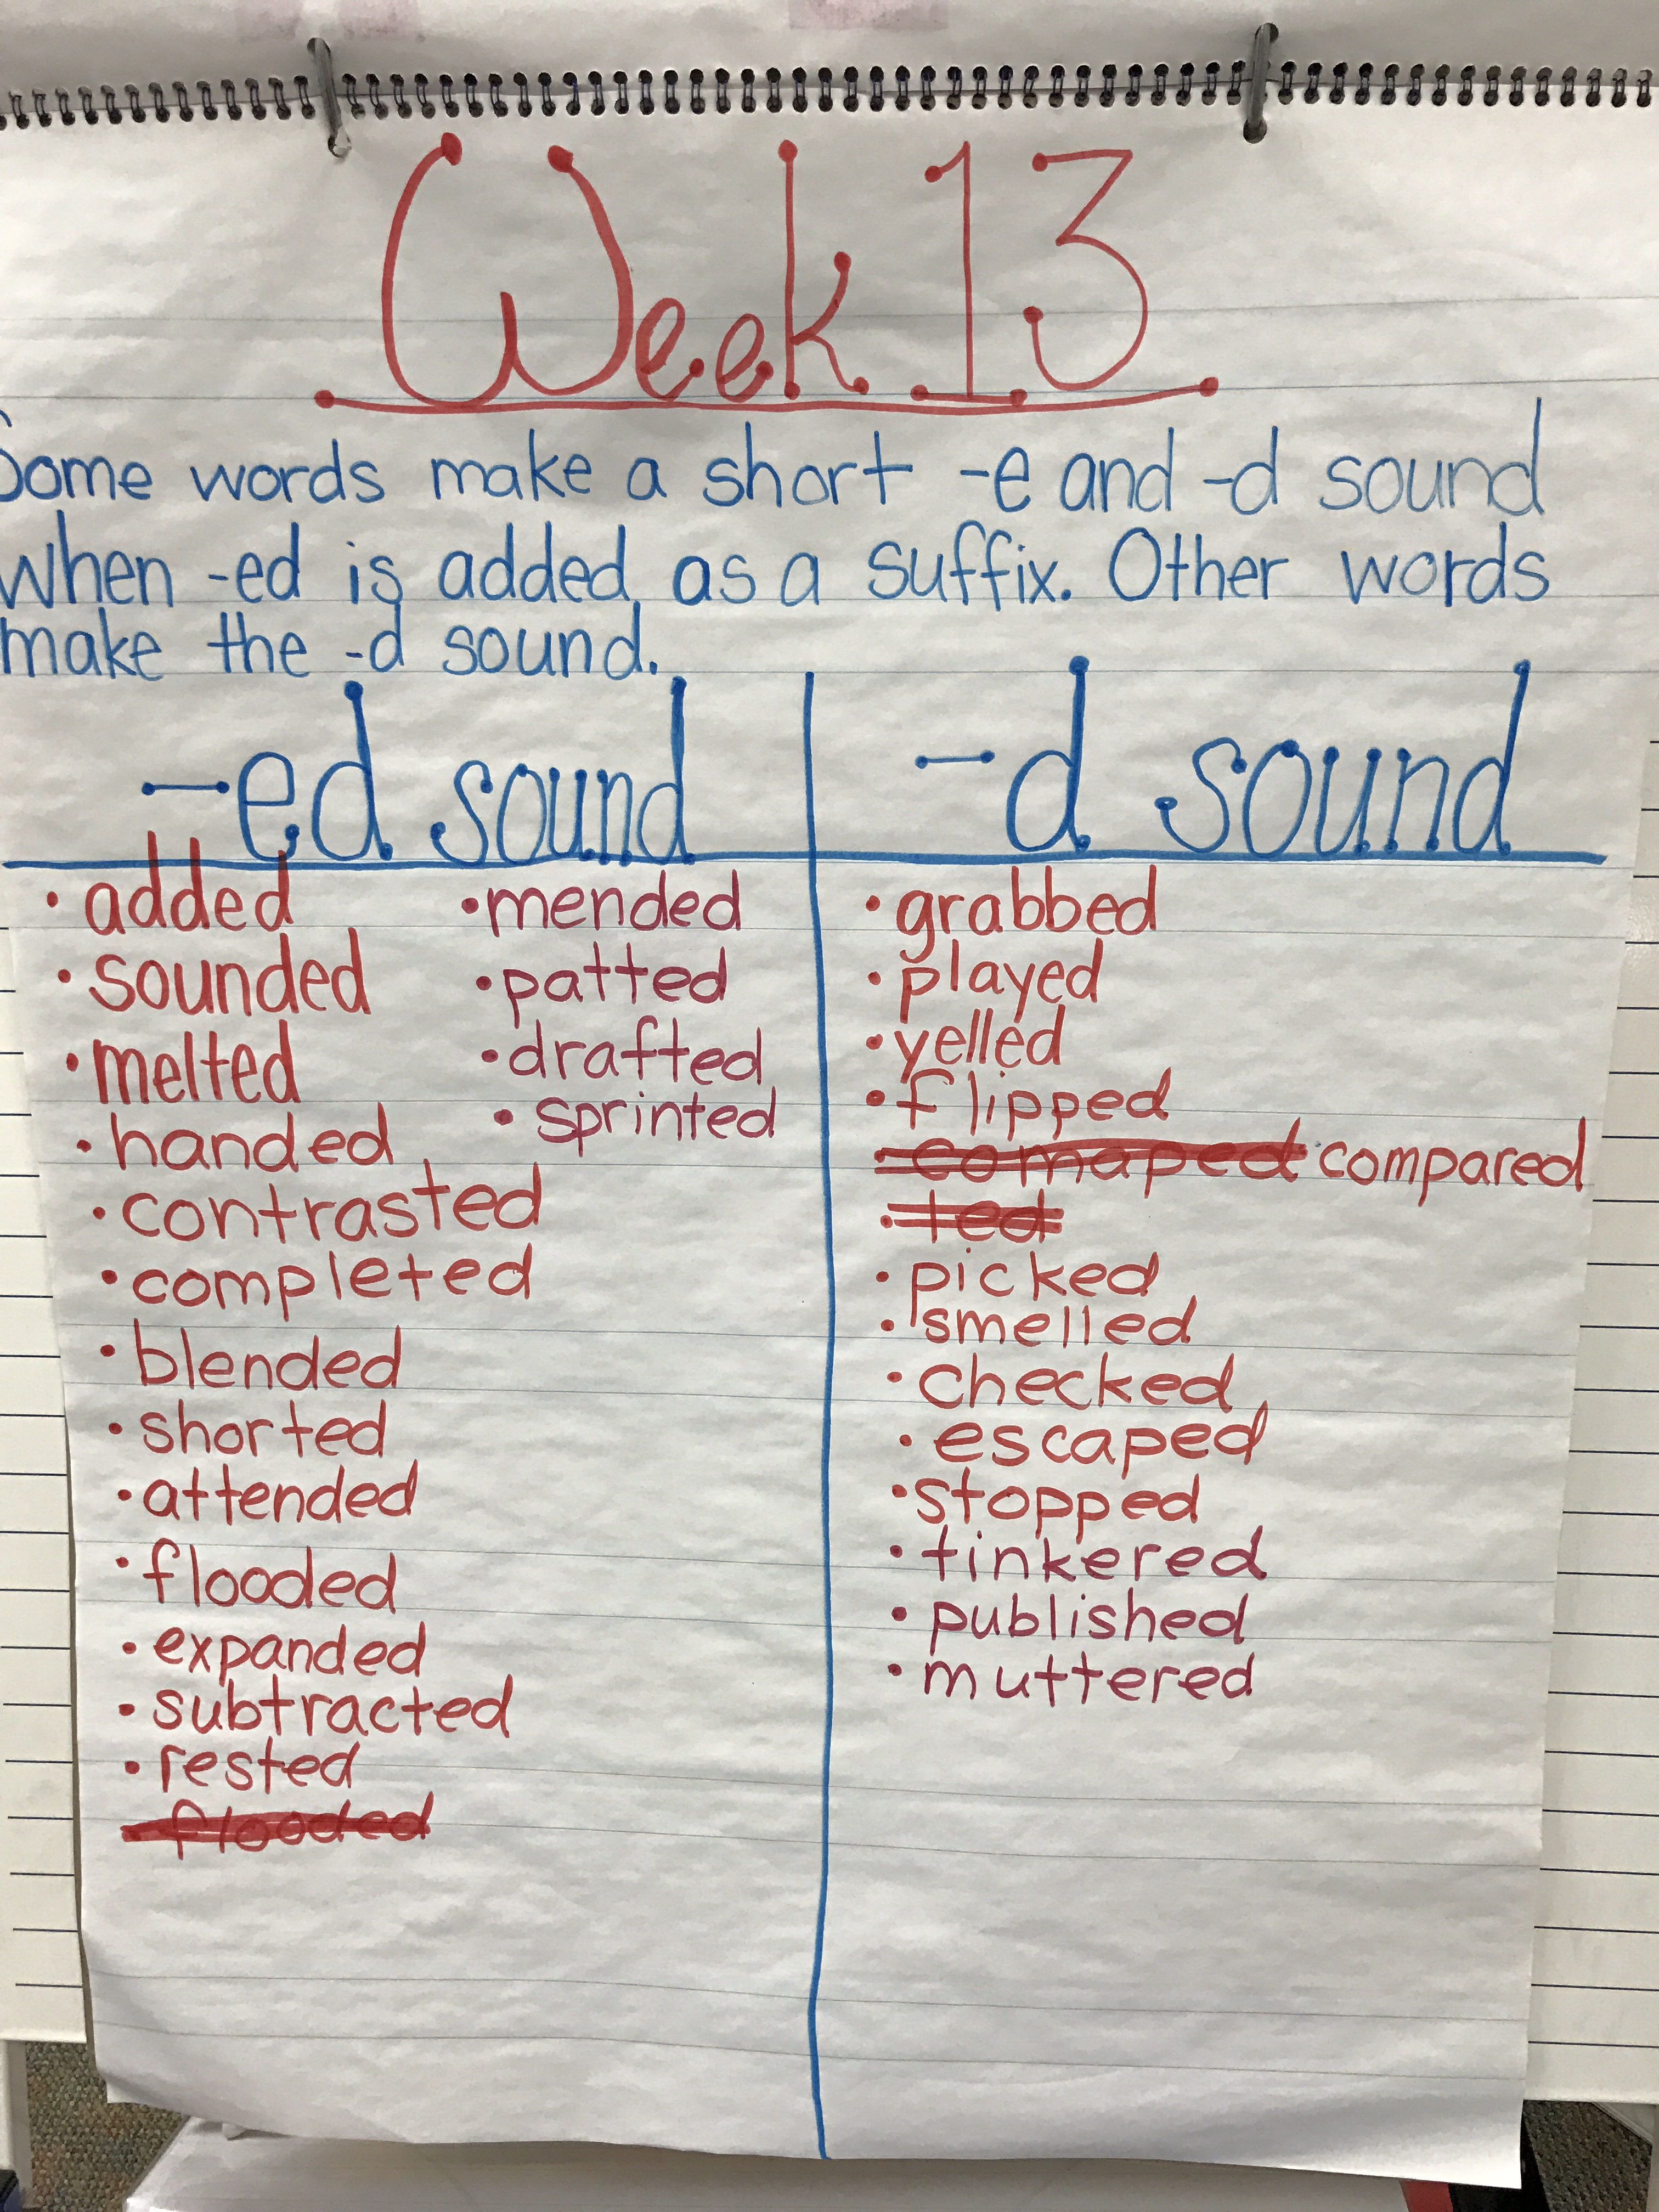 Week 13
Some words make a short -e and -d sound
when -ed is added as a suffix. Other words
make the -d sound.
-ed sound
• added
• sounded
• melted
• handed
• contrasted
• completed
• blended
• shorted
• attended
• flooded
• expanded
• subtracted
• rested
flooded
• mended
• patted
• drafted
• sprinted
-d sound
• grabbed
• played
• yelled
• flipped
• comaped compared
• ted
• picked
• smelled
• checked
• escaped
• stopped
• tinkered
• published
• muttered